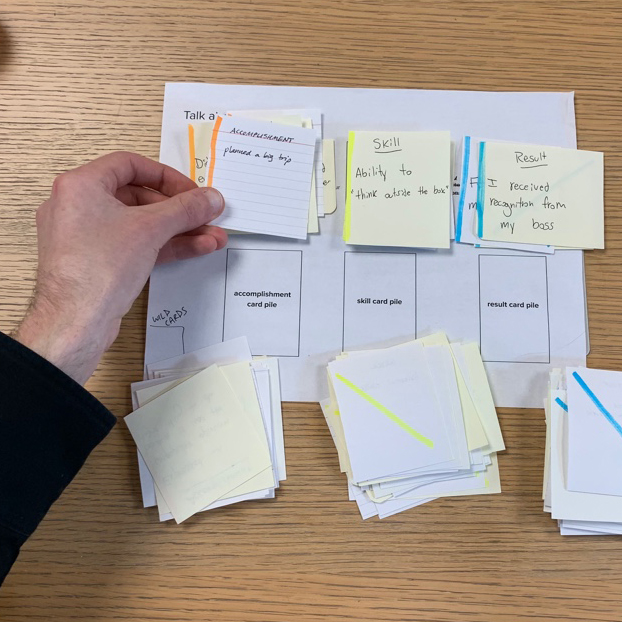 Talk a
ACCOMPLISHMENT
planned a big trip
Skill
Ability to
"think outside the box"
Result
I received
recognition from
my boss
accomplishment
card pile
skill card pile
result card pile
WILD
CARDS